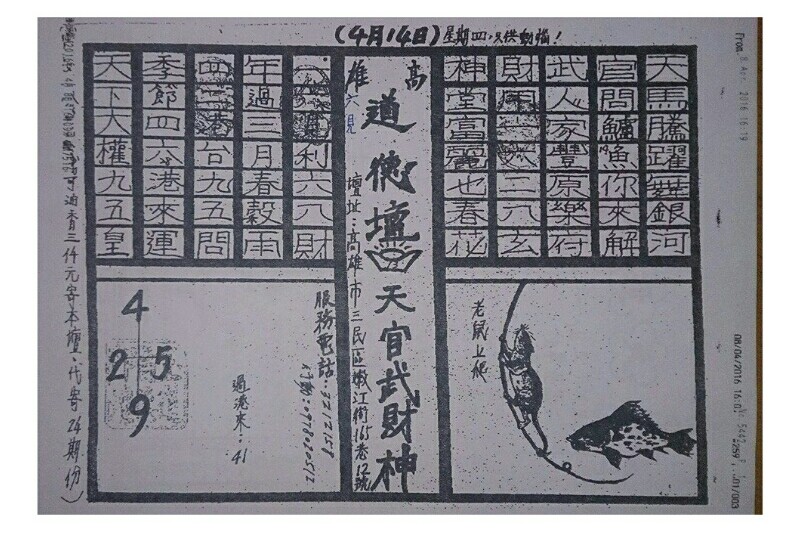 (4月14日)星期四.只供動腦!
From
8 Apr 2016 16:19
08/04/2016 16:0
01/003
天馬騰躍舞銀河
官問鱸漁你來解
武人家豐原樂付
財 二六玄
神堂富麗也春花
高雄
六現
道德壇
天官武財神
壇址:高雄市三民區嫩江街165巷12號
利六八財
年過三月春穀雨
四 港台九五問
季節四六港來運
天下大權九五皇
老鼠上爬
服務電話:3212158
行動:0978020512
過港來:41
4
2 5
9
可油香三仟元寄本壇.代寄24期份)